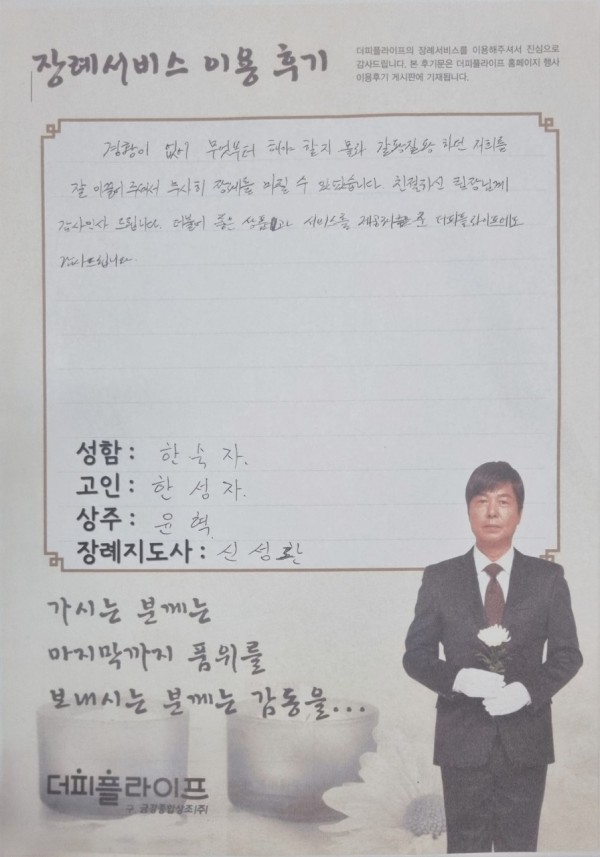 장례서비스 이용 후기
더피플라이프의 장례서비스를 이용해주셔서 진심으로
감사드립니다. 본 후기문은 더피플라이프 홈페이지 행사
이용후기 게시판에 기재됩니다.
경황이 없어 무엇부터 해야 할지 몰라 갈팡질팡 하던 저희를
잘 이끌어 주셔서 무사히 장례를 마칠 수 있었습니다. 친절하신 팀장님께
감사인사 드립니다. 더불어 좋은 상품과 서비스를 제공해준 더피플라이프에도
감사드립니다.
성함 : 한숙자.
고인 : 한성자.
상주 : 윤혁
장례지도사 : 신성환
가시는 분께는
마지막까지 품위를
보내시는 분께는 감동을...
더피플라이프
구. 금강종합상조(주)